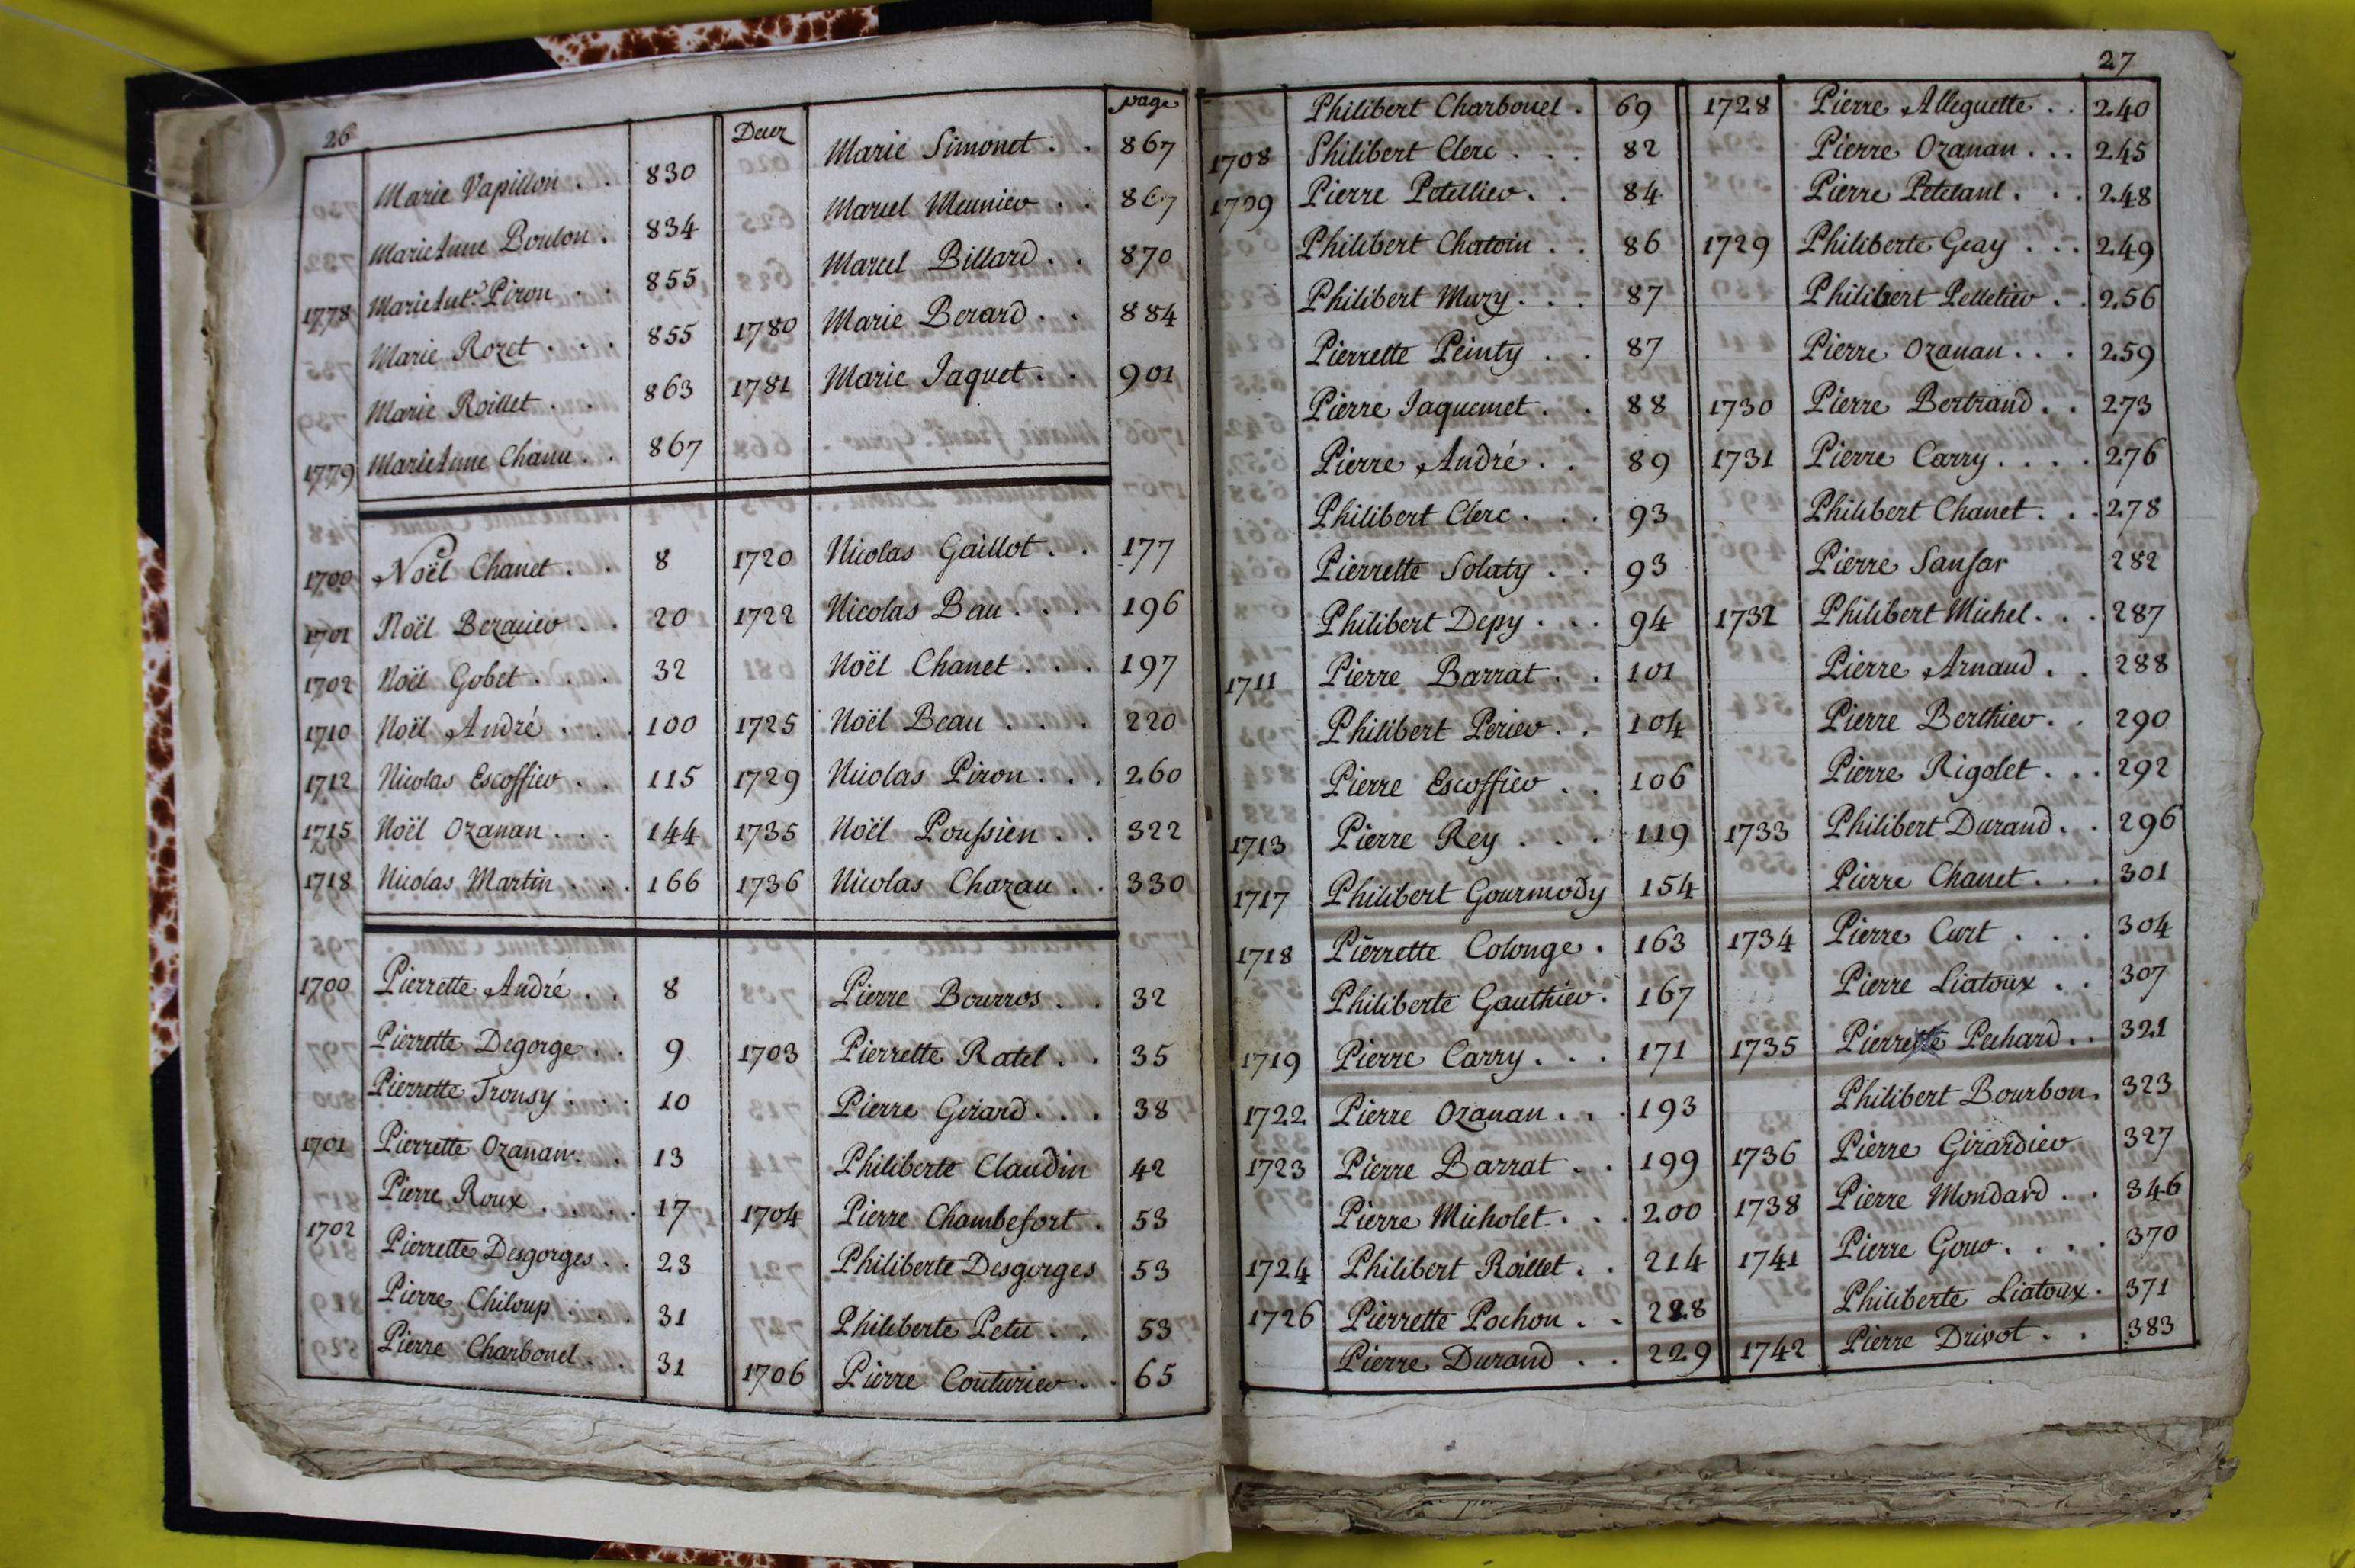 26
page
Marie Vapillon . . 830
MarieAnne Boulon . 834
1778 MarieAnt.e Piron . . 855
Marie Rozet . . . 855
Marie Roillet . . 863
1779 MarieAnne Chanu . . 867
Deux Marie Simonet . . 867
Marcel Meunier . . 867
Marcel Billard . . 870
1780 Marie Berard . . 884
1781 Marie Jaquet . . 901
1700 Noël Chanet . . 8
1701 Noël Bezanier . . 20
1702 Noël Gobet . . . 32
1710 Noël André . . . 100
1712 Nicolas Escoffier . . 115
1715 Noël Ozanan . . . 144
1718 Nicolas Martin . . . 166
1720 Nicolas Gaillot . . 177
1722 Nicolas Beau . . . 196
Noël Chanet . . . 197
1725 Noël Beau . . . 220
1729 Nicolas Piron . . . 260
1735 Noël Poussien . . 322
1736 Nicolas Chazau . . 330
1700 Pierrette André . . 8
Pierrette Degorge . . 9
Pierrette Trousy . . . 10
1701 Pierrette Ozanan . . 13
Pierre Roux . . . . 17
1702 Pierrette Desgorges . . 23
Pierre Chiloup . . . 31
Pierre Charbonel . . 31
Pierre Bourros . . 32
1703 Pierrette Ratel . . 35
Pierre Girard . . . 38
Philiberte Claudin 42
1704 Pierre Chambefort . 53
Philiberte Desgorges 53
Philiberte Petit . . 53
1706 Pierre Couturier . . 65
27
Philibert Charbonel . 69
1708 Philibert Clerc . . . 82
1709 Pierre Petellier . . 84
Philibert Chatoin . . 86
Philibert Muzy . . . 87
Pierrette Peinty . . 87
Pierre Jaquemet . . 88
Pierre André . . 89
Philibert Clerc . . . 93
Pierrette Solaty . . 93
Philibert Depy . . . 94
1711 Pierre Barrat . . 101
Philibert Perier . . 104
Pierre Escoffier . . 106
1713 Pierre Rey . . . 119
1717 Philibert Gourmody 154
1718 Pierrette Colonge . 163
Philiberte Gauthier . 167
1719 Pierre Carry . . . 171
1722 Pierre Ozanan . . . 193
1723 Pierre Barrat . . 199
Pierre Micholet . . . 200
1724 Philibert Roillet . . 214
1726 Pierrette Pochon . . 228
Pierre Durand . . 229
1728 Pierre Alleguette . . 240
Pierre Ozanan . . . 245
Pierre Petetant . . . 248
1729 Philiberte Geay . . . 249
Philibert Pelletier . . 256
Pierre Ozanan . . . 259
1730 Pierre Bertrand . . 273
1731 Pierre Carry . . . . 276
Philibert Chanet . . . 278
Pierre Sansar 282
1732 Philibert Michel . . . 287
Pierre Arnaud . . 288
Pierre Berthier . . 290
Pierre Rigolet . . . 292
1733 Philibert Durand . . 296
Pierre Chanet . . . 301
1734 Pierre Curt . . . 304
Pierre Liatoux . . 307
1735 Pierre Pechard . . 321
Philibert Bourbon . 323
1736 Pierre Girardier 327
1738 Pierre Mondard . . 346
1741 Pierre Gour . . . . 370
Philiberte Liatoux . 371
1742 Pierre Drivot . . 383